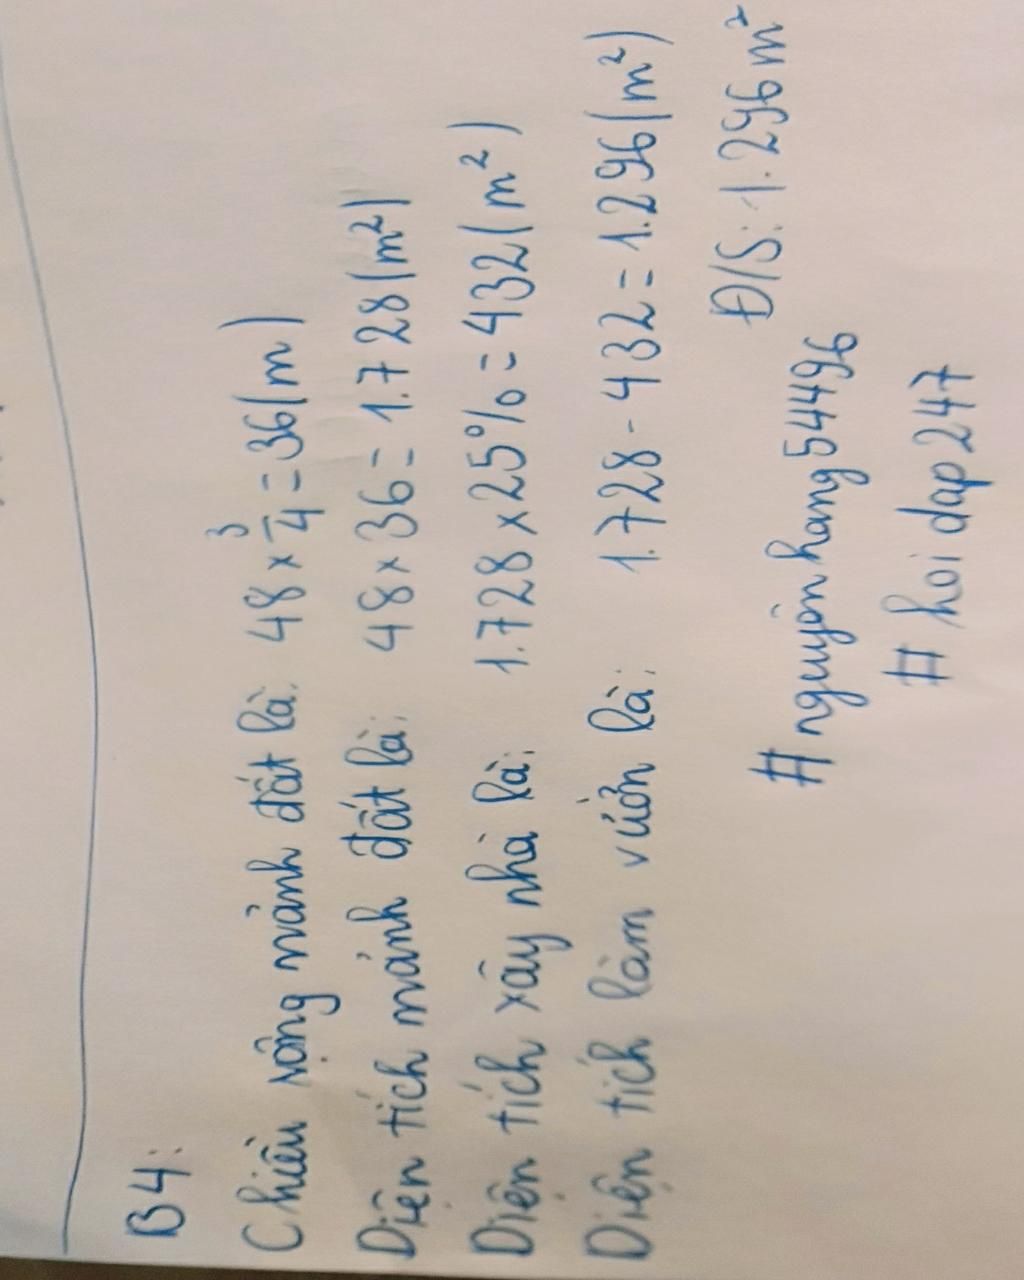 B4:
Chiều rộng mảnh đất là: 48 × 3/4 = 36(m)
Diện tích mảnh đất là: 48 × 36 = 1.728(m²)
Diện tích xây nhà là: 1.728 × 25% = 432(m²)
Diện tích làm vườn là: 1.728 - 432 = 1.296(m²)
Đ/S: 1.296m²
#nguyênhang54496
# hoidap247